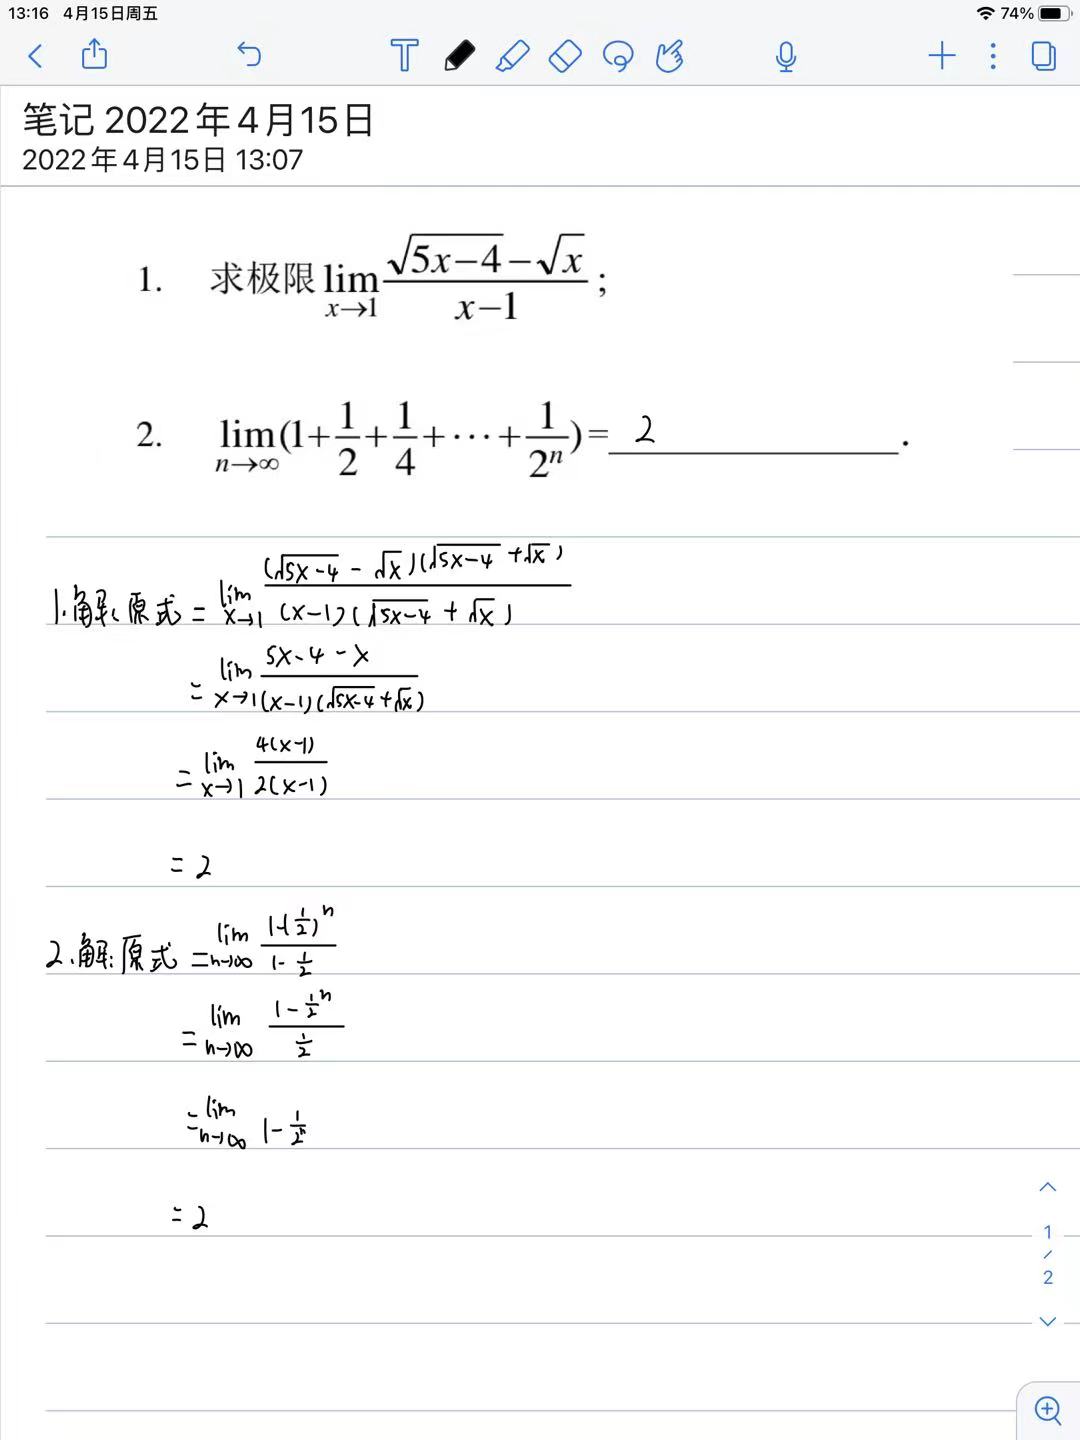 13:16 4月15日周五 74%
笔记 2022年4月15日
2022年4月15日 13:07
1. 求极限 lim x→1 (√(5x−4) − √x) / (x−1) ;
2. lim n→∞ (1 + 1/2 + 1/4 + ⋯ + 1/2ⁿ) = 2 .
1.解:原式 = lim x→1 (√(5x−4) − √x)(√(5x−4) + √x) / (x−1)(√(5x−4) + √x)
= lim x→1 (5x−4−x) / (x−1)(√(5x−4) + √x)
= lim x→1 4(x−1) / 2(x−1)
= 2
2.解:原式 = lim n→∞ (1−(1/2)ⁿ) / (1−1/2)
= lim n→∞ (1 − 1/2ⁿ) / (1/2)
= lim n→∞ 1 − 1/2ⁿ
= 2
1
/
2